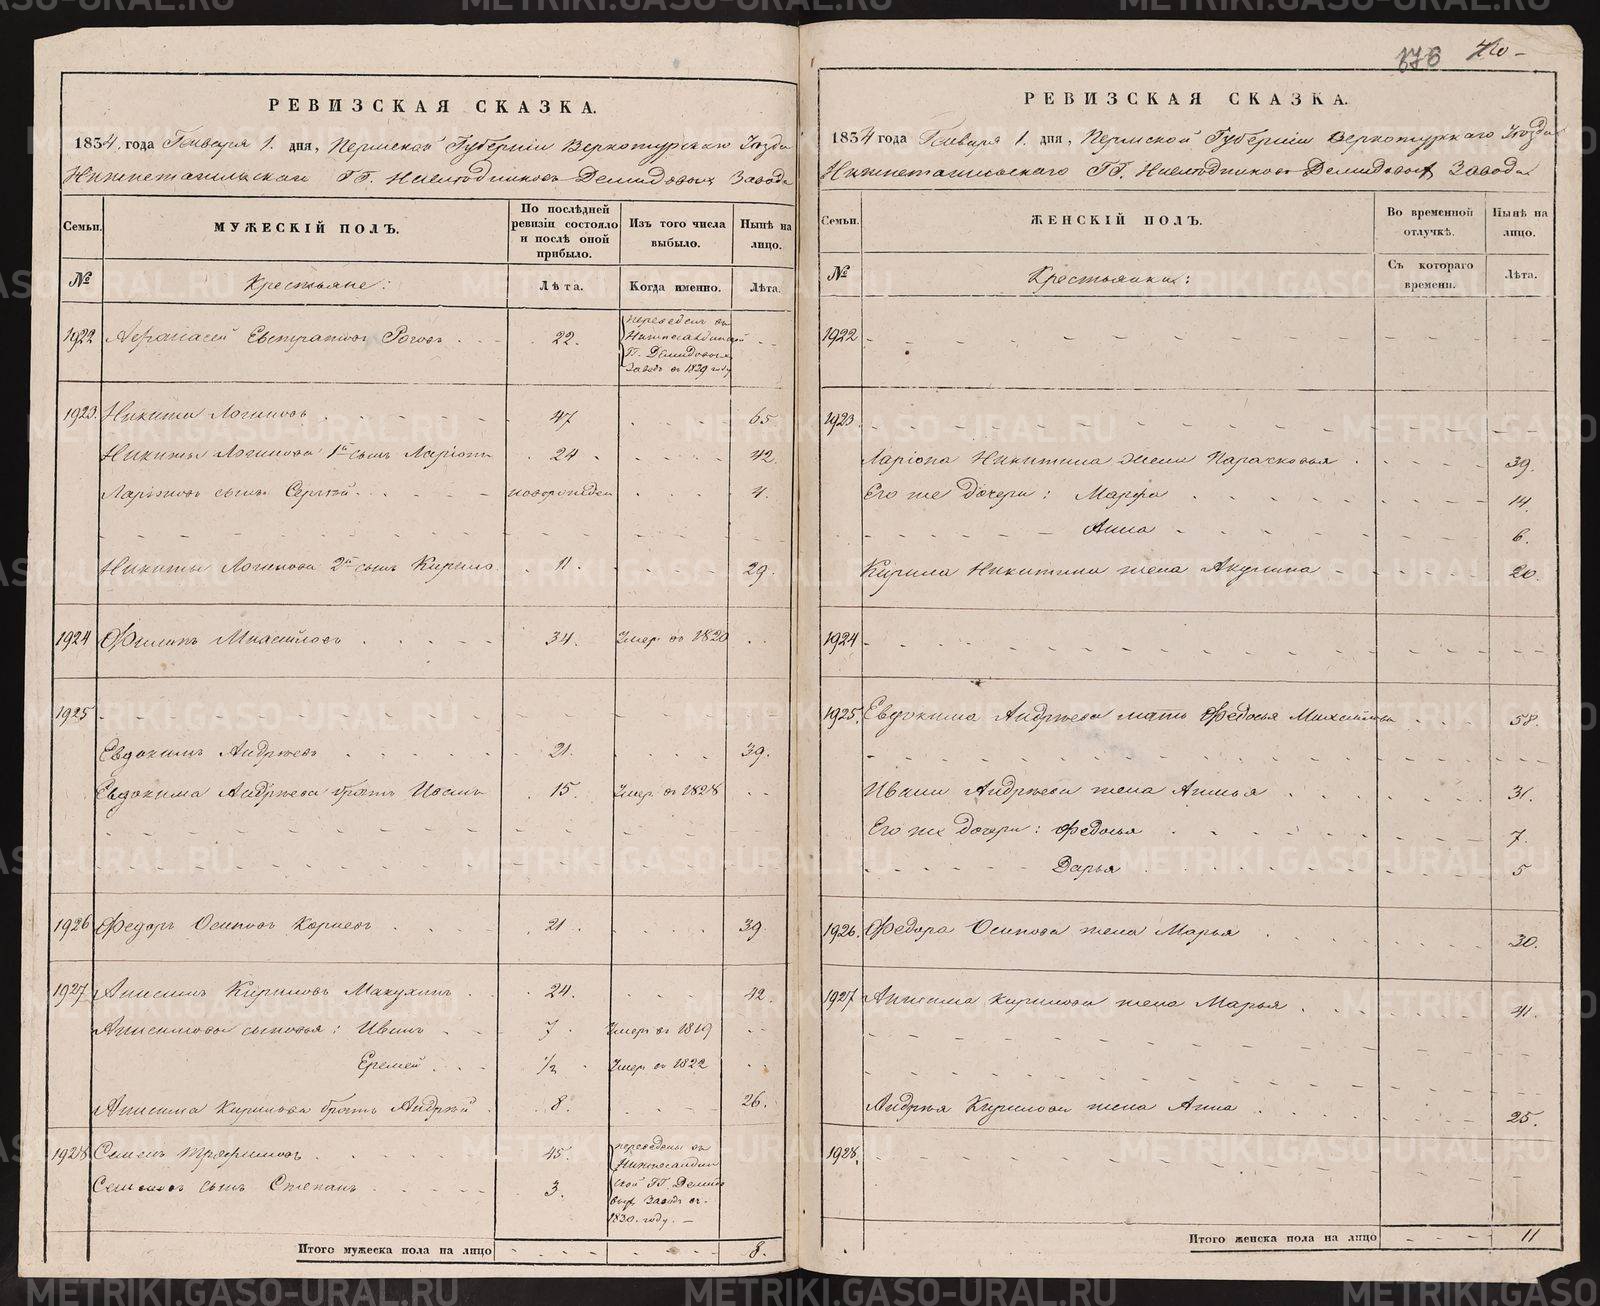 РЕВИЗСКАЯ СКАЗКА.
1834 года Генваря 1. дня, Пермской Губернiи Верхотурскаго Уѣзда
Нижнетагильскаго ГГ. Наслѣдниковъ Демидовыхъ Завода
Семьи.
МУЖЕСКІЙ ПОЛЪ.
По послѣдней ревизіи состояло и послѣ оной прибыло.
Изъ того числа выбыло.
Нынѣ на лицо.
№
Крестьяне:
Лѣта.
Когда именно.
Лѣта.
1922 Афанасей Евстратовъ Роговъ 22. переведенъ въ Нижнесалдинскій ГГ. Демидовыхъ Заводъ въ 1829 году
1923. Никита Логиновъ 47 65
Никиты Логинова 1й сынъ Ларіонъ 24 42
Ларіоновъ сынъ Сергѣй новорожденъ 4.
Никиты Логинова 2й сынъ Кирило 11 29
1924 Филипъ Мнасѣиловъ 34. Умеръ въ 1820
1925
Евдокимъ Андрѣевъ 21. 39.
Евдокима Андрѣева братъ Иванъ 15. Умеръ въ 1828
1926 Федоръ Осиповъ Корневъ 21. 39
1927 Анисимъ Кириловъ Макухинъ 24. 42
Анисимовы сыновья: Иванъ 7 Умеръ въ 1819
Еремей 1/2 Умеръ въ 1822
Анисима Кирилова братъ Андрѣй 8. 26.
1928 Семенъ Трофимовъ 45. переведены въ Нижнесалдинской ГГ. Демидовыхъ Заводъ въ 1830. году.
Семеновъ сынъ Степанъ 3.
Итого мужеска пола на лицо 8.
676
РЕВИЗСКАЯ СКАЗКА.
1834 года Генваря 1. дня, Пермской Губернiи Верхотурскаго Уѣзда
Нижнетагильскаго ГГ. Наслѣдниковъ Демидовыхъ Завода
Семьи.
ЖЕНСКІЙ ПОЛЪ.
Во временной отлучкѣ.
Нынѣ на лицо.
№
Крестьянки:
Съ котораго времени.
Лѣта.
1922
1923
Ларіона Никитина жена Парасковья 39.
Его же дочери: Марфа 14.
Анна 6.
Кирила Никитина жена Акулина 20.
1924
1925 Евдокима Андрѣева мать Федосья Михайлова 58.
Ивана Андрѣева жена Анисья 31.
Его же дочери: Федосья 7.
Дарья 5
1926. Федора Осипова жена Марья 30.
1927 Анисима Кирилова жена Марья 41.
Андрѣя Кирилова жена Анна 25.
1928.
Итого женска пола на лицо 11
METRIKI.GASO-URAL.RU